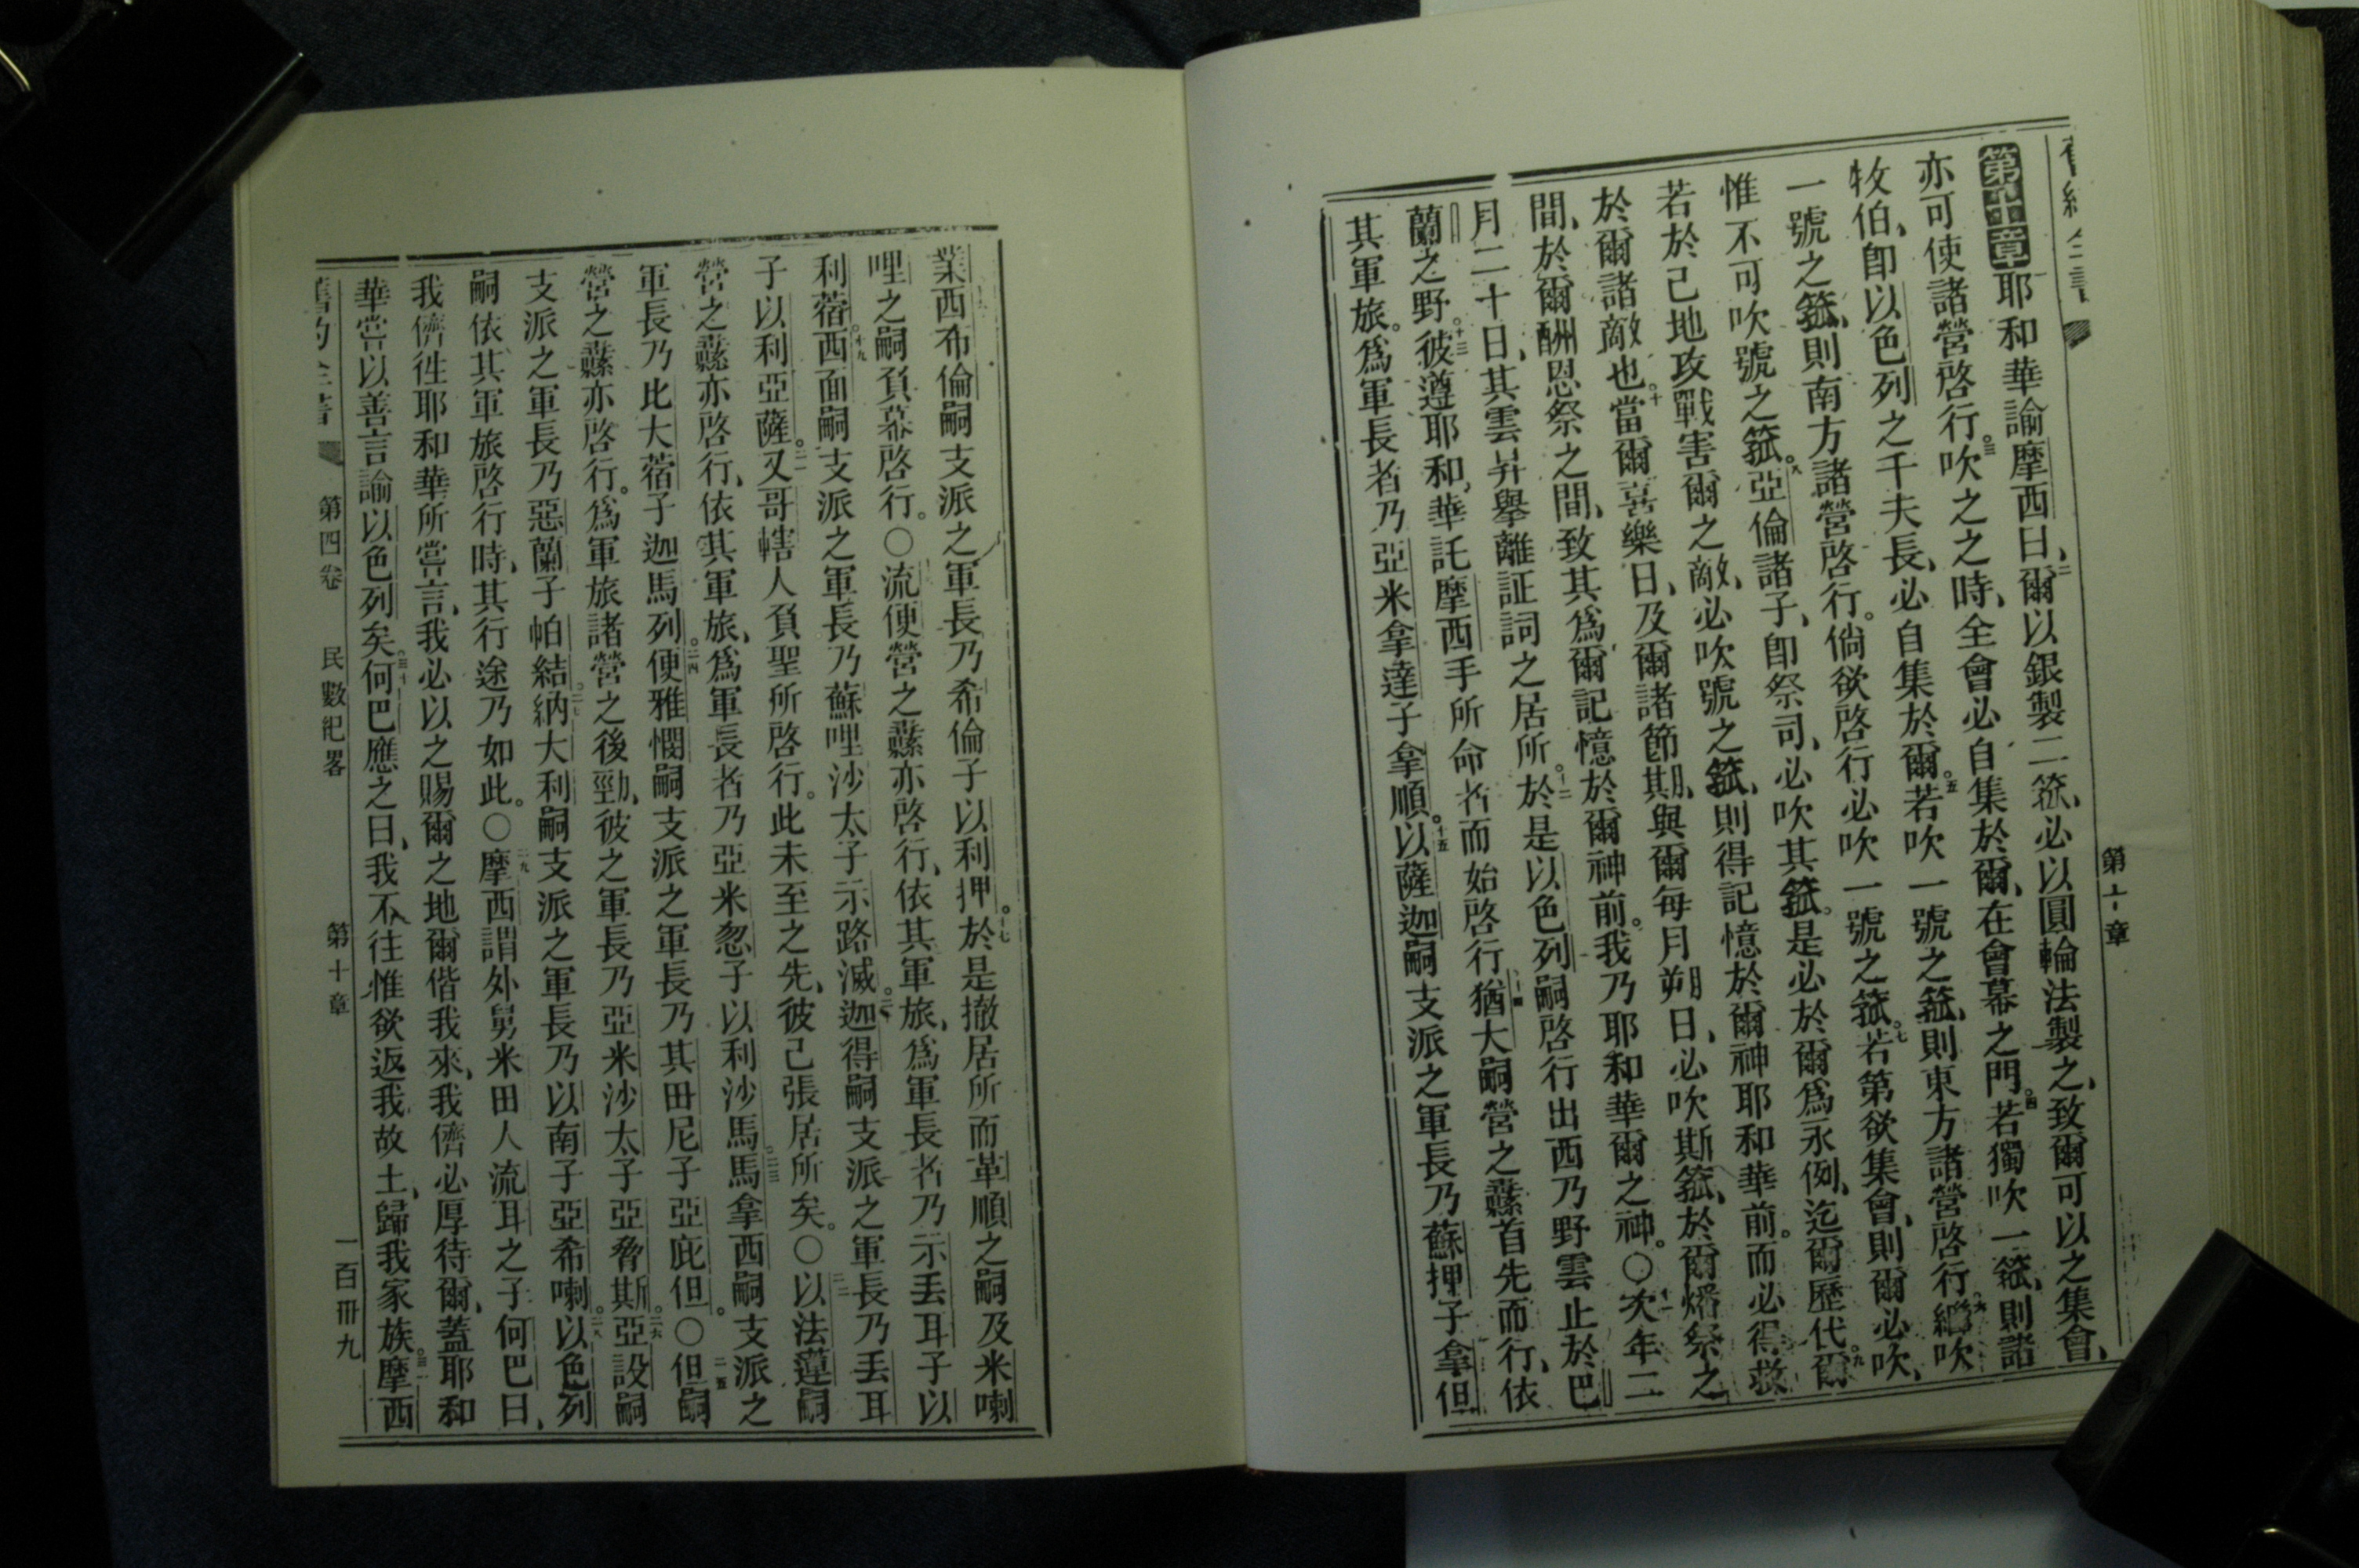 第十章
第十章耶和華諭摩西曰、二爾以銀製二箛、必以圓輪法製之、致爾可以之集會、
亦可使諸營啓行。三吹之之時、全會必自集於爾、在會幕之門。四若獨吹一箛、則諸
牧伯、卽以色列之千夫長、必自集於爾。五若吹一號之箛、則東方諸營啓行。六繼吹
一號之箛、則南方諸營啓行。倘欲啓行必吹一號之箛。七若第欲集會、則爾必吹、
惟不可吹號之箛。八亞倫諸子、卽祭司、必吹其箛。是必於爾爲永例、迄爾歷代。九爾
若於己地攻戰害爾之敵、必吹號之箛、則得記憶於爾神耶和華前。而必得救
於爾諸敵也。十當爾喜樂日、及爾諸節期、與爾每月朔日、必吹斯箛、於爾燔祭之
間、於爾酬恩祭之間、致其爲爾記憶於爾神前。我乃耶和華爾之神。〇十一次年二
月二十日、其雲昇舉離証詞之居所。十二於是以色列嗣啓行出西乃野雲止於巴
蘭之野。十三彼遵耶和華託摩西手所命者而始啓行十四猶大嗣營之纛首先而行、依
其軍旅。爲軍長者乃亞米拿達子拿順。十五以薩迦嗣支派之軍長乃蘇押子拿但
業西布倫嗣支派之軍長乃希倫子以利押。十七於是撤居所而革順之嗣及米喇
哩之嗣負幕啓行。〇流便營之纛亦啓行、依其軍旅、爲軍長者乃示丟耳子以
利蓿。十九西面嗣支派之軍長乃蘇哩沙太子示路滅。二十迦得嗣支派之軍長乃丟耳
子以利亞薩。二一又哥轄人負聖所啓行。此未至之先、彼已張居所矣。〇二二以法蓮嗣
營之纛亦啓行、依其軍旅、爲軍長者乃亞米忽子以利沙馬。二三馬拿西嗣支派之
軍長乃比大蓿子迦馬列。二四便雅憫嗣支派之軍長乃其田尼子亞庇但。〇二五但嗣
營之纛亦啓行。爲軍旅諸營之後勁、彼之軍長乃亞米沙太子亞脅斯。二六亞設嗣
支派之軍長乃惡蘭子帕結。二七納大利嗣支派之軍長乃以南子亞希喇。二八以色列
嗣依其軍旅啓行時、其行途乃如此。〇二九摩西謂外舅米田人流耳之子何巴曰、
我儕徃耶和華所嘗言、我必以之賜爾之地爾偕我來、我儕必厚待爾、蓋耶和
華嘗以善言諭以色列矣。三十何巴應之曰、我不往惟欲返我故土、歸我家族。三一摩西
第四卷 民數紀畧 第十章 一百卌九